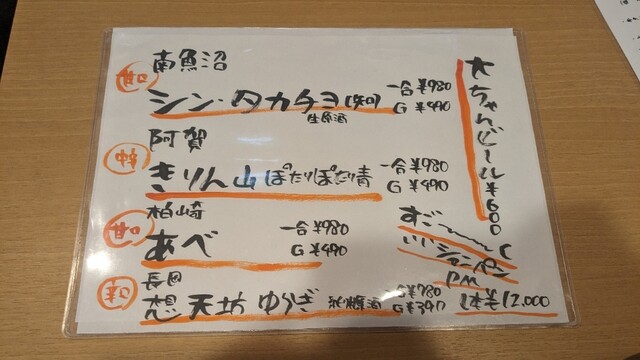 南魚沼
甘口
シン・タカチヨ
生原酒
一合 ¥980
G ¥490
阿賀
きりん山 ぽたりぽたり青
一合 ¥980
G ¥490
柏崎
甘口
あべ
一合 ¥980
G ¥490
長岡
想天坊 ゆらぎ
一合 ¥780
G ¥390
大ちゃんビール ¥600
すご〜く
いいシャンパン
P.M
1本 ¥12,000